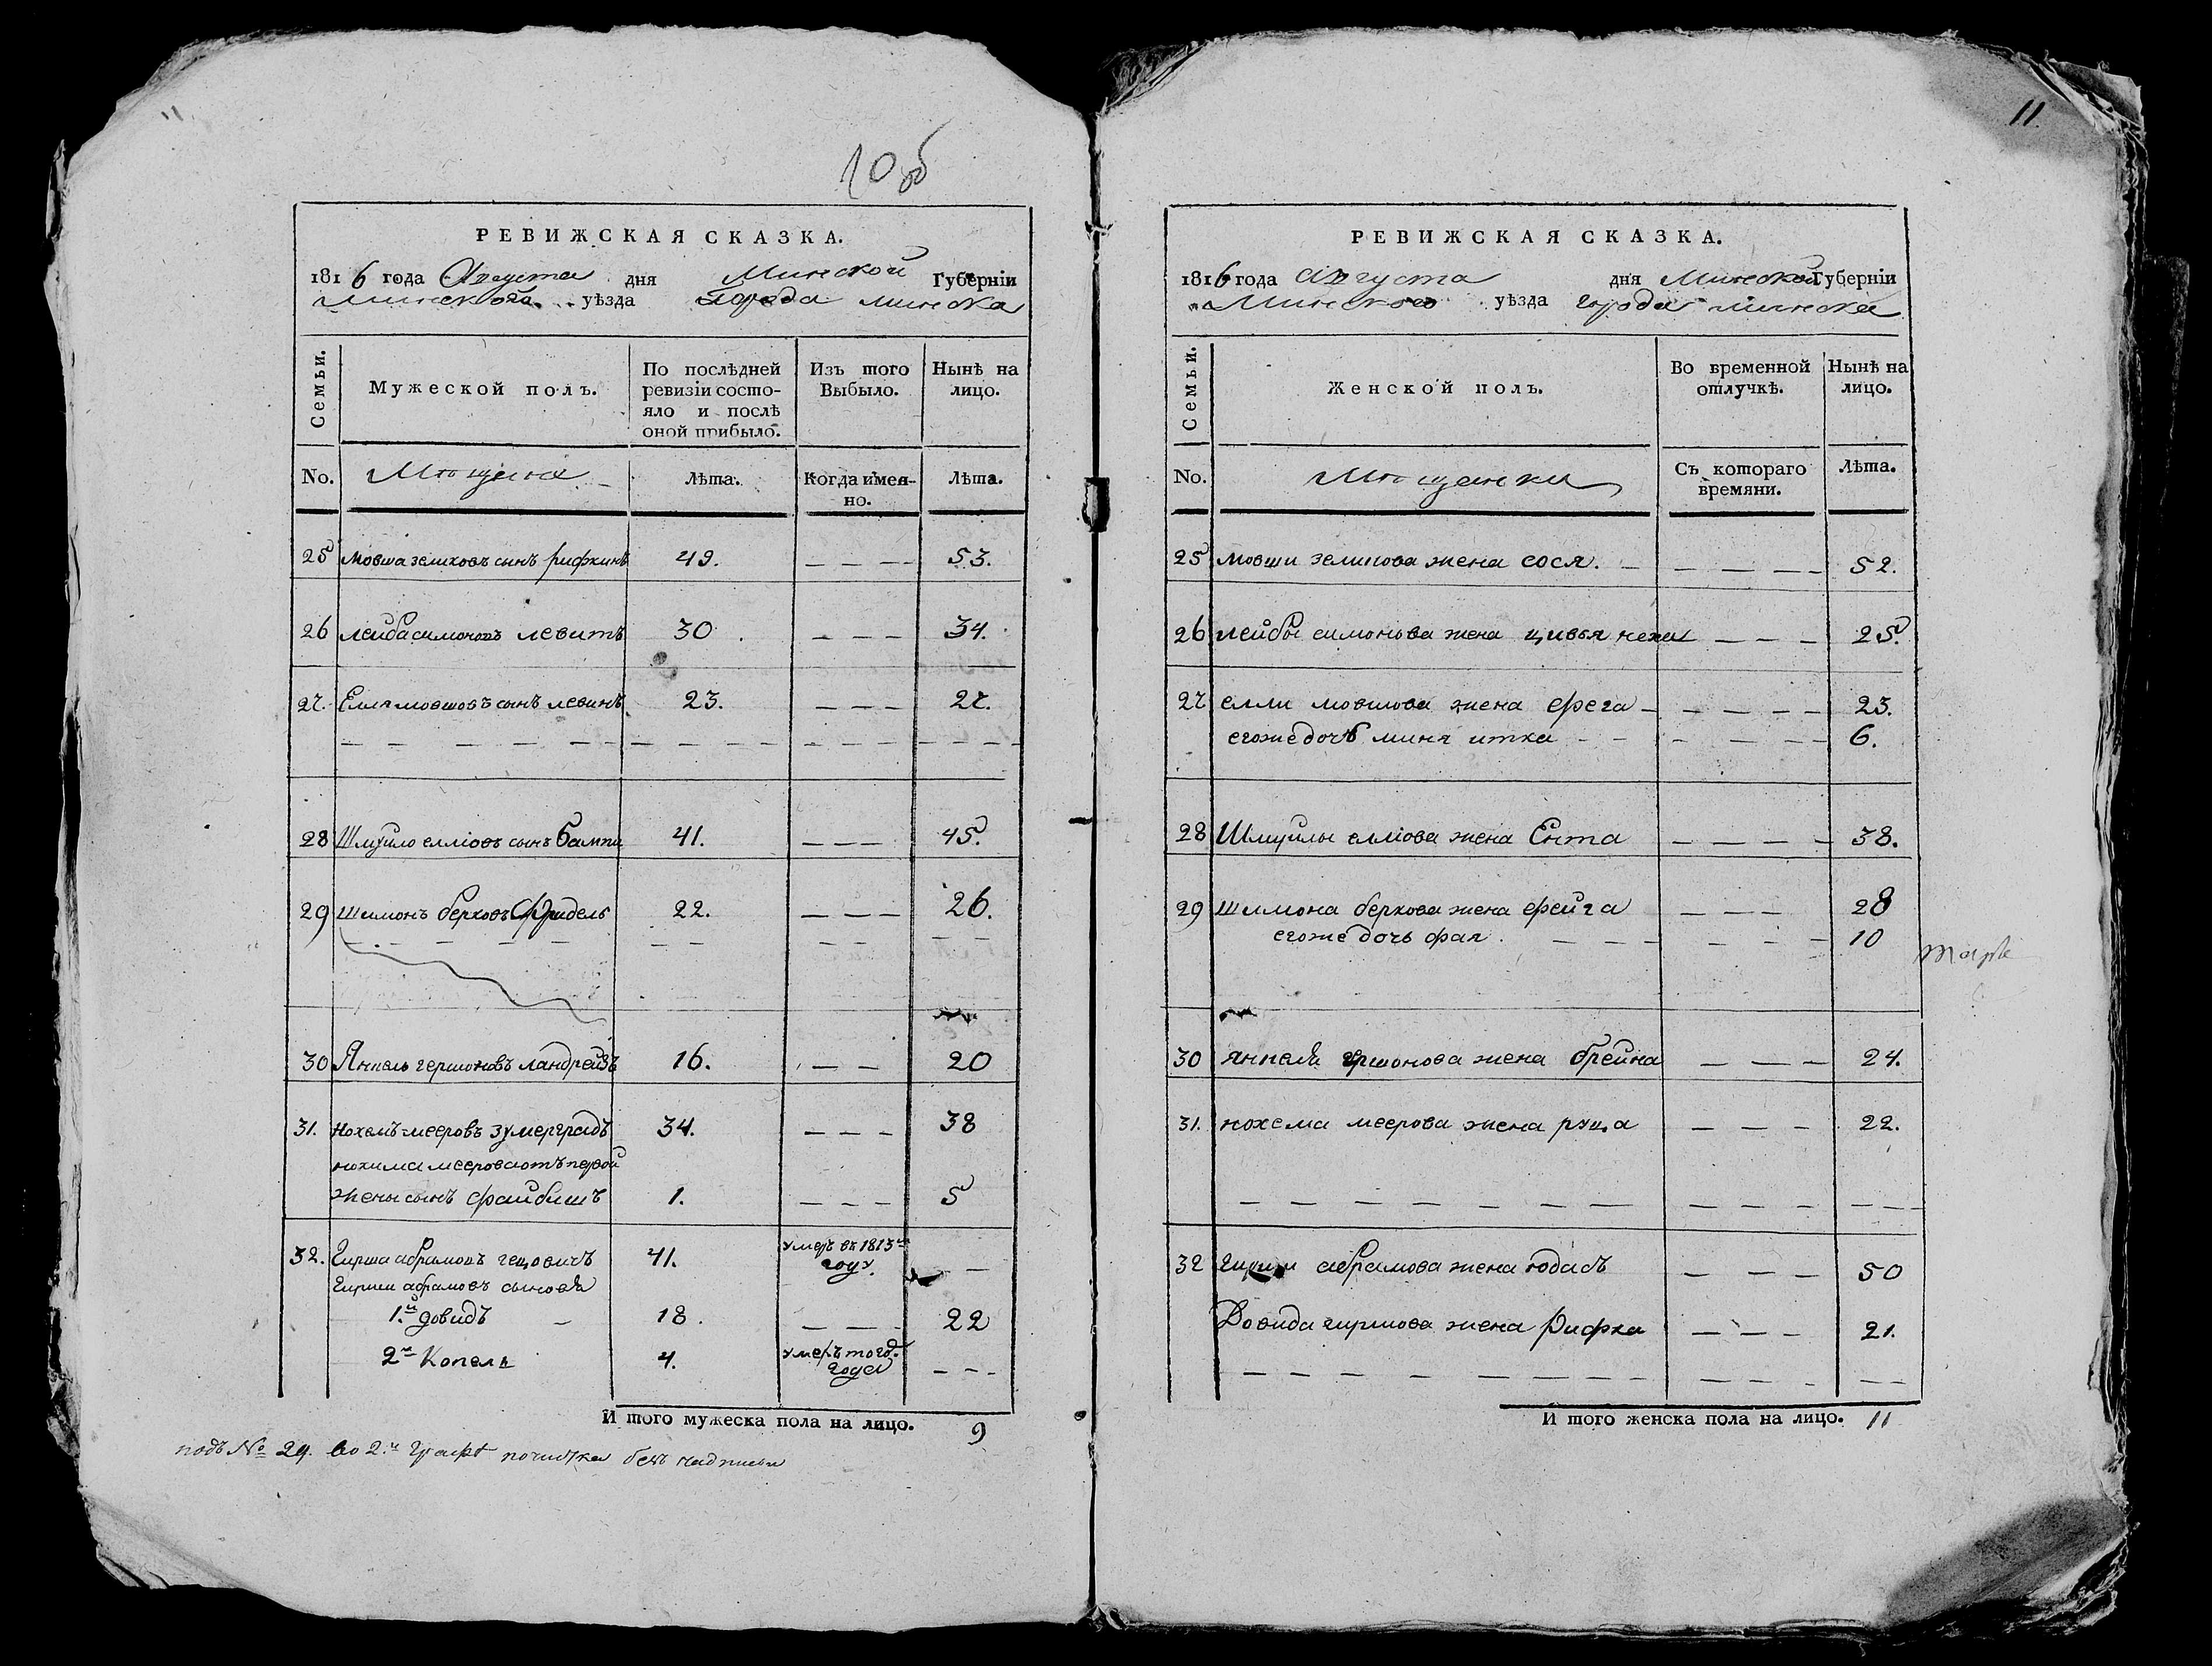 11
10 об
РЕВИЖСКАЯ СКАЗКА.
1816 года Августа дня Минской Губерніи
Минского уѣзда города Минска
Семьи.
Мужеской полъ.
По послѣдней ревизіи состо-
яло и послѣ
оной прибыло.
Изъ того
Выбыло.
Нынѣ на
лицо.
No. Мѣщане Лѣта. Когда имен-
но. Лѣта.
25 Мовша зеликовъ сынъ рифкинъ 49. — — — 53.
26 лейба симоновъ левитъ 30 — — — 34.
27. Елля мовшовъ сынъ левинъ 23. — — — 27.
28 Шмуйло елліовъ сынъ 41. — — — 45.
29 шимонъ берковъ Фридель 22. — — — 26.
30 Янкель гершоновъ ландрейзъ 16. — — 20
31. Нохемъ мееровъ зумерградъ 34. — — — 38
нохима меерова отъ первой
жены сынъ файбишъ 1. — — — 5
32. Гирша абрамовъ гецовичъ 41. умеръ въ 1813м
году. — —
Гирши абрамовъ сыновья
1.й довидъ — 18. — — — 22
2й Копель 4. умеръ того
года — — —
И того мужеска пола на лицо. 9
подъ № 29. во 2.й графѣ почистка безъ надписи
11
РЕВИЖСКАЯ СКАЗКА.
1816 года Августа дня Минской Губерніи
Минского уѣзда города минска
Семьи.
Женской полъ.
Во временной
отлучкѣ.
Нынѣ на
лицо.
No. Мѣщанки Съ котораго
времяни. Лѣта.
25 мовши зеликова жена сося. — — — — 52.
26 лейбы симонова жена цивья неха — — — 25.
27 елли мовшова жена фрега — — — — 23.
егоже дочь миня итка — — — — 6.
28 Шмуйлы елліова жена Ента — — — — 38.
29 шимона беркова жена фейга — — — 28
егоже дочь фая. — — — — — — 10
30 янкеля гершонова жена брейна — — — 24.
31. нохема меерова жена руца — — — 22.
32 гирши абрамова жена юдась — — — 50
Довида гиршова жена Рифка — — — 21.
И того женска пола на лицо. 11